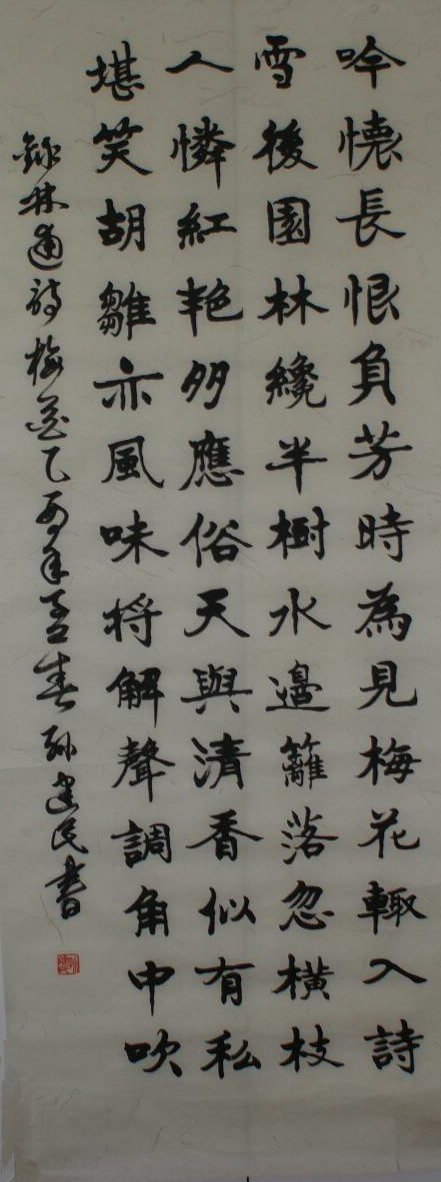 吟懷長恨負芳時為見梅花輙入詩
雪後園林纔半樹水邊籬落忽橫枝
人憐紅艳多應俗天與清香似有私
堪笑胡雛亦風味将解聲調角中吹
錄林逋詩梅花乙酉年孟春孫建民書